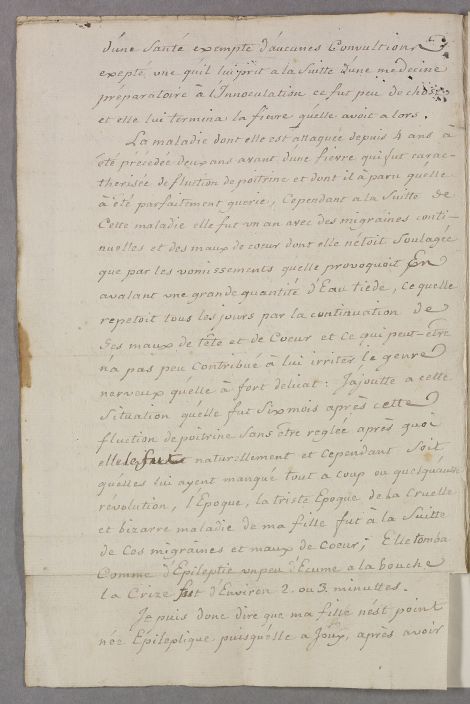 d'une santé exempte d'aucunes Convultions
excepté une qu'il lui prit a la Suitte d'une medecine
préparatoire à l'Innoculation ce fut peu de chose
et elle lui termina la fievre qu'elle avoit alors.
La maladie dont elle est attaquée depuis 4 ans à
été précédée deux ans avant d'une fievre qui fut carac-
therisée de fluction de poitrine et dont il à paru quelle
à été parfaitement guerie, Cependant a la Suitte de
Cette maladie elle fut un an avec des migraines conti-
nuelles et des maux de coeur dont elle n'étoit Soulagée
que par les vomissements quelle provoquoit En
avalant une grande quantité d'Eau tiede, Ce quelle
repetoit tous les jours par la continuation de
Ses maux de tête et de Coeur et Ce qui peut-être
na pas peu Contribué à lui irriter le genre
nerveux qu'elle à fort delicat: J'ajoutte a cette
Situation quelle fut Six mois après cette
fluction de poitrine Sans être reglée après quoi
elle le fut naturellement et Cependant Soit
qu'elles lui ayent manqué tout a coup ou quelqu'autre
révolution, l'Epoque, la triste Epoque de la Cruelle
et bizarre maladie de ma fille fut à la Suitte
de Ces migraines et maux de Coeur; Elle tomba
Comme d'Epileptie un peu d'Ecume a la bouche
la Crize fut d'Environ 2. ou 3. minuttes.
Je puis donc dire que ma fille nést point
née Epileptique, puisquélle a Jouy, après avoir